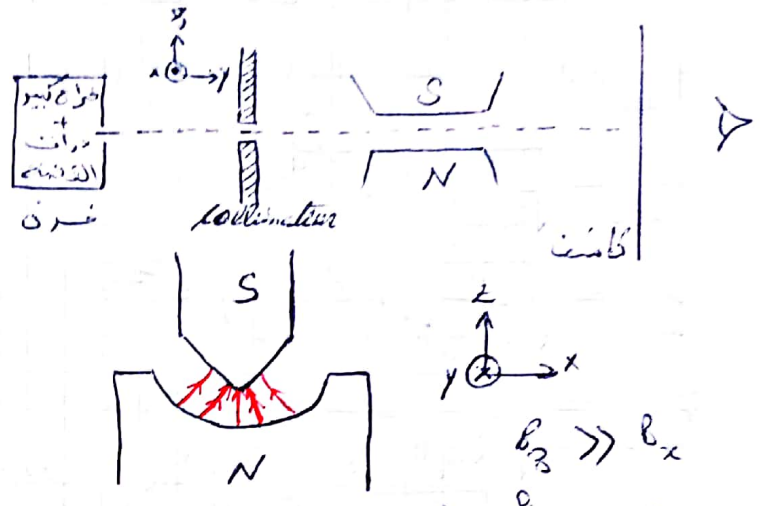 z
x y
فراغ كبير
+
ذرات
الفضة
فرن
collimateur
S
N
كاشف
S
N
z
y x
B_z >> B_x